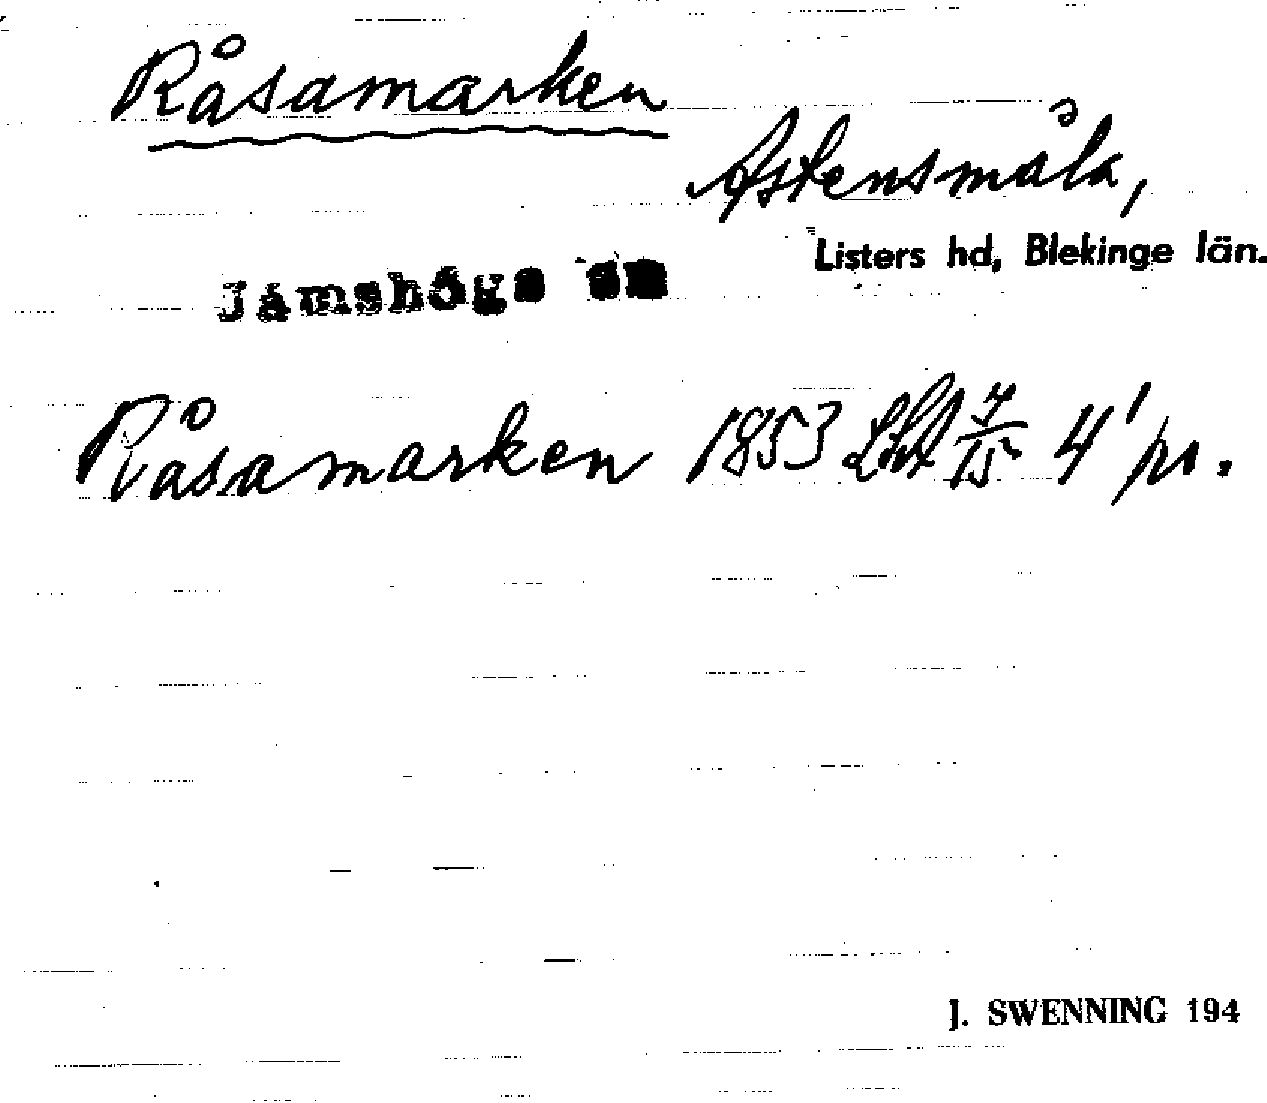 Råsamarken
Askensmåla,
Listers hd, Blekinge län.
Jämshögs sn
Råsamarken 1853 Lht 7/15 4' pr.
J. SWENNING 194